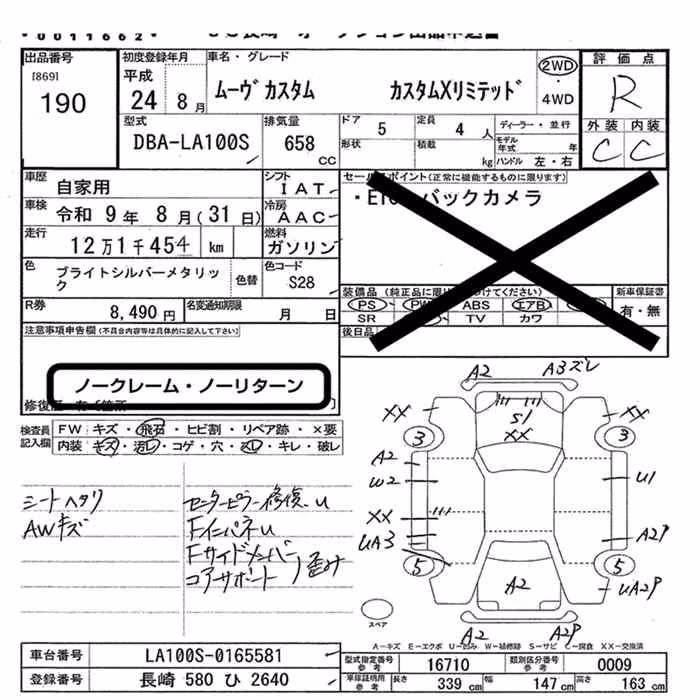 0011662
出品番号
[869]
190
初度登録年月
平成
24 8月
車名・グレード
ムーヴカスタム カスタムXリミテッド
2WD
・
4WD
評価点
R
外装 内装
C C
型式
DBA-LA100S
排気量
658 CC
ドア 5
定員 4 人
ディーラー・並行
形状
積載 kg
モデル年式 年
ハンドル 左・右
車歴
自家用
シフト
IAT
車検
令和 9年 8月(31日)
冷房
AAC
走行
12万1千454 km
燃料
ガソリン
色
ブライトシルバーメタリック
色替
色コード
S28
R券
8,490円
名変通知期限
月 日
セールスポイント(正常に機能するものに限ります)
バックカメラ
装備品
PS PW ABS エアB
SR TV カワ
後日品
新車保証書
有・無
注意事項申告欄(不具合内容等は具体的に記入して下さい)
ノークレーム・ノーリターン
検査員記入欄
FW キズ・飛石・ヒビ割・リペア跡・×要
内装 キズ・汚レ・コゲ・穴・スレ・キレ・破レ
シートヘタリ
AWキズ
センターピラー修復、U
FインパネU
Fサイドメンバー
コアサポート 歪み
A2 A3ズレ
XX S1 XX
3 XX 3
A2
W2 U1
XX
UA3 A2P
5 5
A2 UA2P
A2 A2P
スペア
A−キズ E−エクボ U−凹み W−補修跡 S−サビ C−腐食 XX−交換済
車台番号 LA100S-0165581
登録番号 長崎 580 ひ 2640
型式指定番号 参考 16710
類別区分番号 参考 0009
車検証明用 参考 長さ 339 cm 幅 147 cm 高さ 163 cm